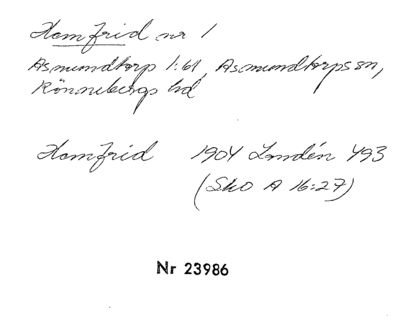 Hemfrid nr 1
Asmundtorp 1:61, Asmundtorps sn,
Rönnebergs hd
Hemfrid 1904 Landén 493
(Sko A 16:27)
Nr 23986